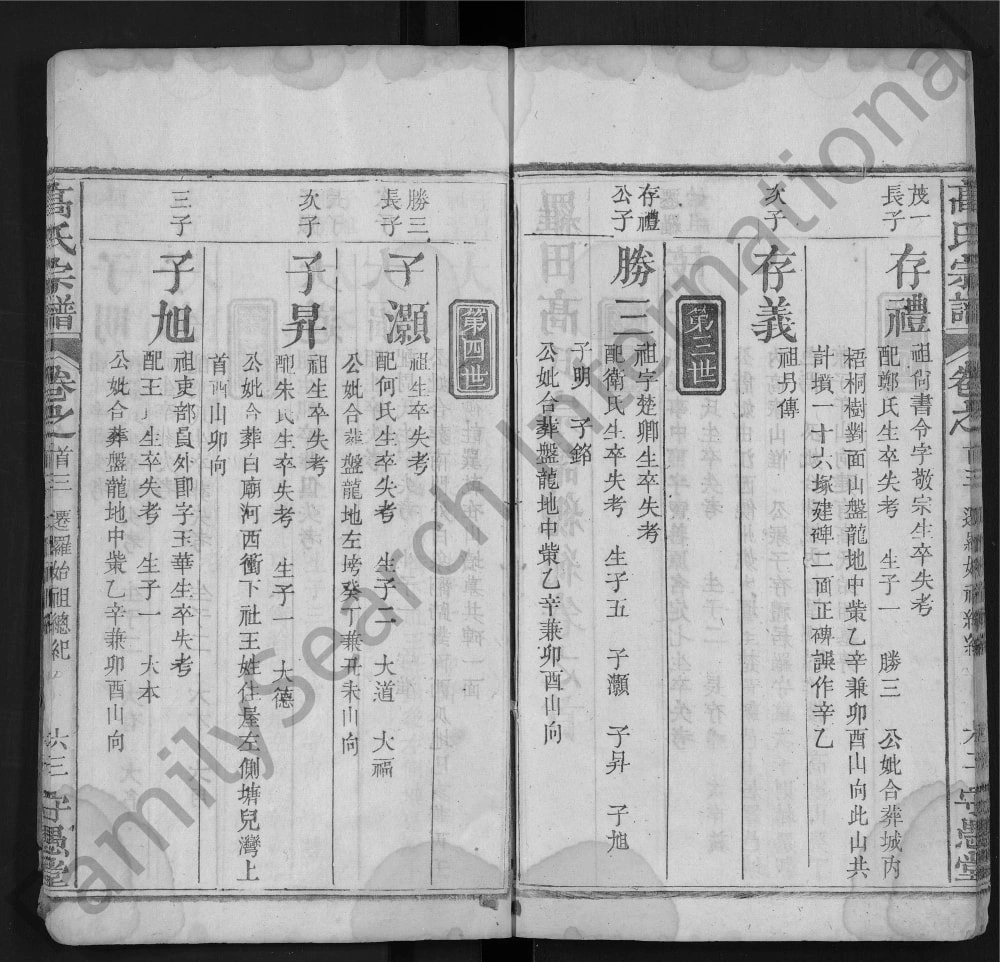 高氏宗譜
卷之首三
遷羅始祖總紀
六二
守愚堂
茂一
長子
存禮
祖尙書令字敬宗生卒失考
配鄭氏生卒失考 生子一 勝三 公妣合葬城內
梧桐樹對面山盤龍地中棠乙辛兼卯酉山向此山共
計墳一十六塚建碑二面正碑誤作辛乙
次子
存義
祖另傳
第三世
存禮
公子
勝三
祖字楚卿生卒失考
配衛氏生卒失考 生子五 子灝 子昇 子旭
子明 子銘
公妣合葬盤龍地中棠乙辛兼卯酉山向
第四世
勝三
長子
子灝
祖生卒失考
配何氏生卒失考 生子二 大道 大福
公妣合葬盤龍地左塝癸丁兼丑未山向
次子
子昇
祖生卒失考
配朱氏生卒失考 生子一 大德
公妣合葬白廟河西衝下社王姓住屋左側塘兒灣上
首酉山卯向
三子
子旭
祖吏部員外郎字玉華生卒失考
配王氏生卒失考 生子一 大本
公妣合葬盤龍地中棠乙辛兼卯酉山向
高氏宗譜
卷之首三
遷羅始祖總紀
六三
守愚堂
FamilySearch International